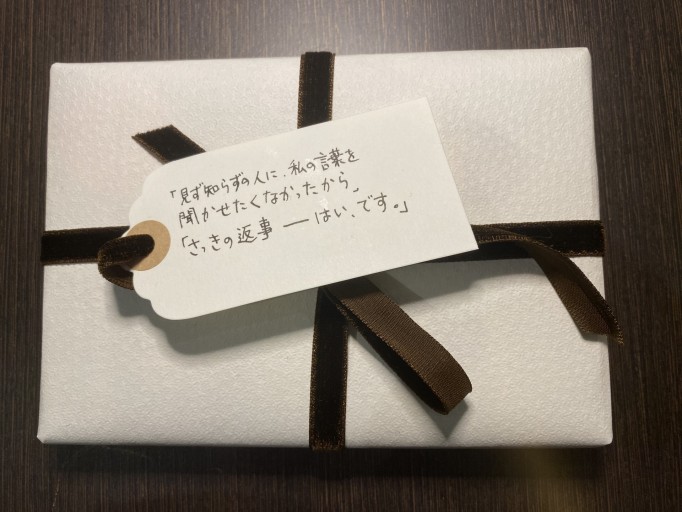 「見ず知らずの人に、私の言葉を
聞かせたくなかったから」
「さっきの返事 ── はい、です。」